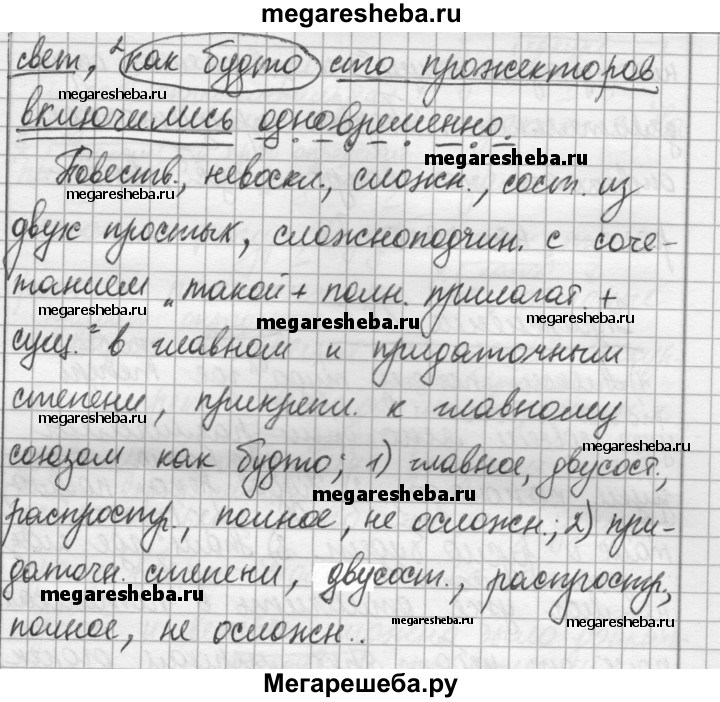 megaresheba.ru
свет, 2 как будто сто прожекторов
megaresheba.ru
включились одновременно.
megaresheba.ru
Повеств., невоскл., сложн., сост. из
megaresheba.ru
двух простых, сложноподчин. с соче-
танием „такой + полн. прилагат. +
megaresheba.ru
megaresheba.ru
megaresheba.ru
сущ." в главном и придаточным
степени, прикрепл. к главному
megaresheba.ru
megaresheba.ru
союзом как будто; 1) главное, двусост.,
megaresheba.ru
megaresheba.ru
распростр., полное, не осложн.; 2) при-
даточн. степени, двусост., распростр.,
megaresheba.ru
полное, не осложн..
megaresheba.ru
megaresheba.ru
Мегарешеба.ру